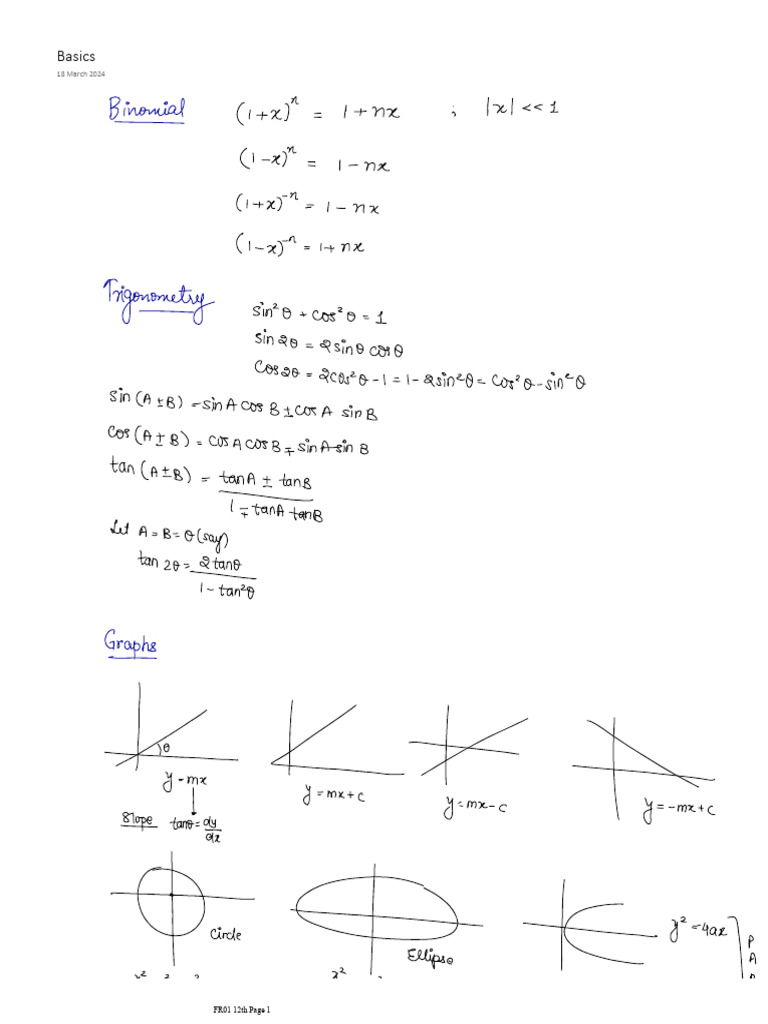 Basics
18 March 2024
Binomial (1+x)ⁿ = 1+nx ; |x| << 1
(1-x)ⁿ = 1-nx
(1+x)⁻ⁿ = 1-nx
(1-x)⁻ⁿ = 1+nx
Trigonometry
sin²θ + cos²θ = 1
sin2θ = 2sinθ cosθ
cos2θ = 2cos²θ-1 = 1-2sin²θ = cos²θ-sin²θ
sin(A±B) = sinA cosB ± cosA sinB
cos(A±B) = cosA cosB ∓ sinA sinB
tan(A±B) = tanA ± tanB
1 ∓ tanA tanB
Let A=B=θ(say)
tan2θ = 2tanθ
1-tan²θ
Graphs
θ
y-mx
y=mx+c
y=mx-c
y=-mx+c
Slope tanθ = dy
dx
Circle
Ellipse
y²=4ax
P
A
FR01 12th Page 1